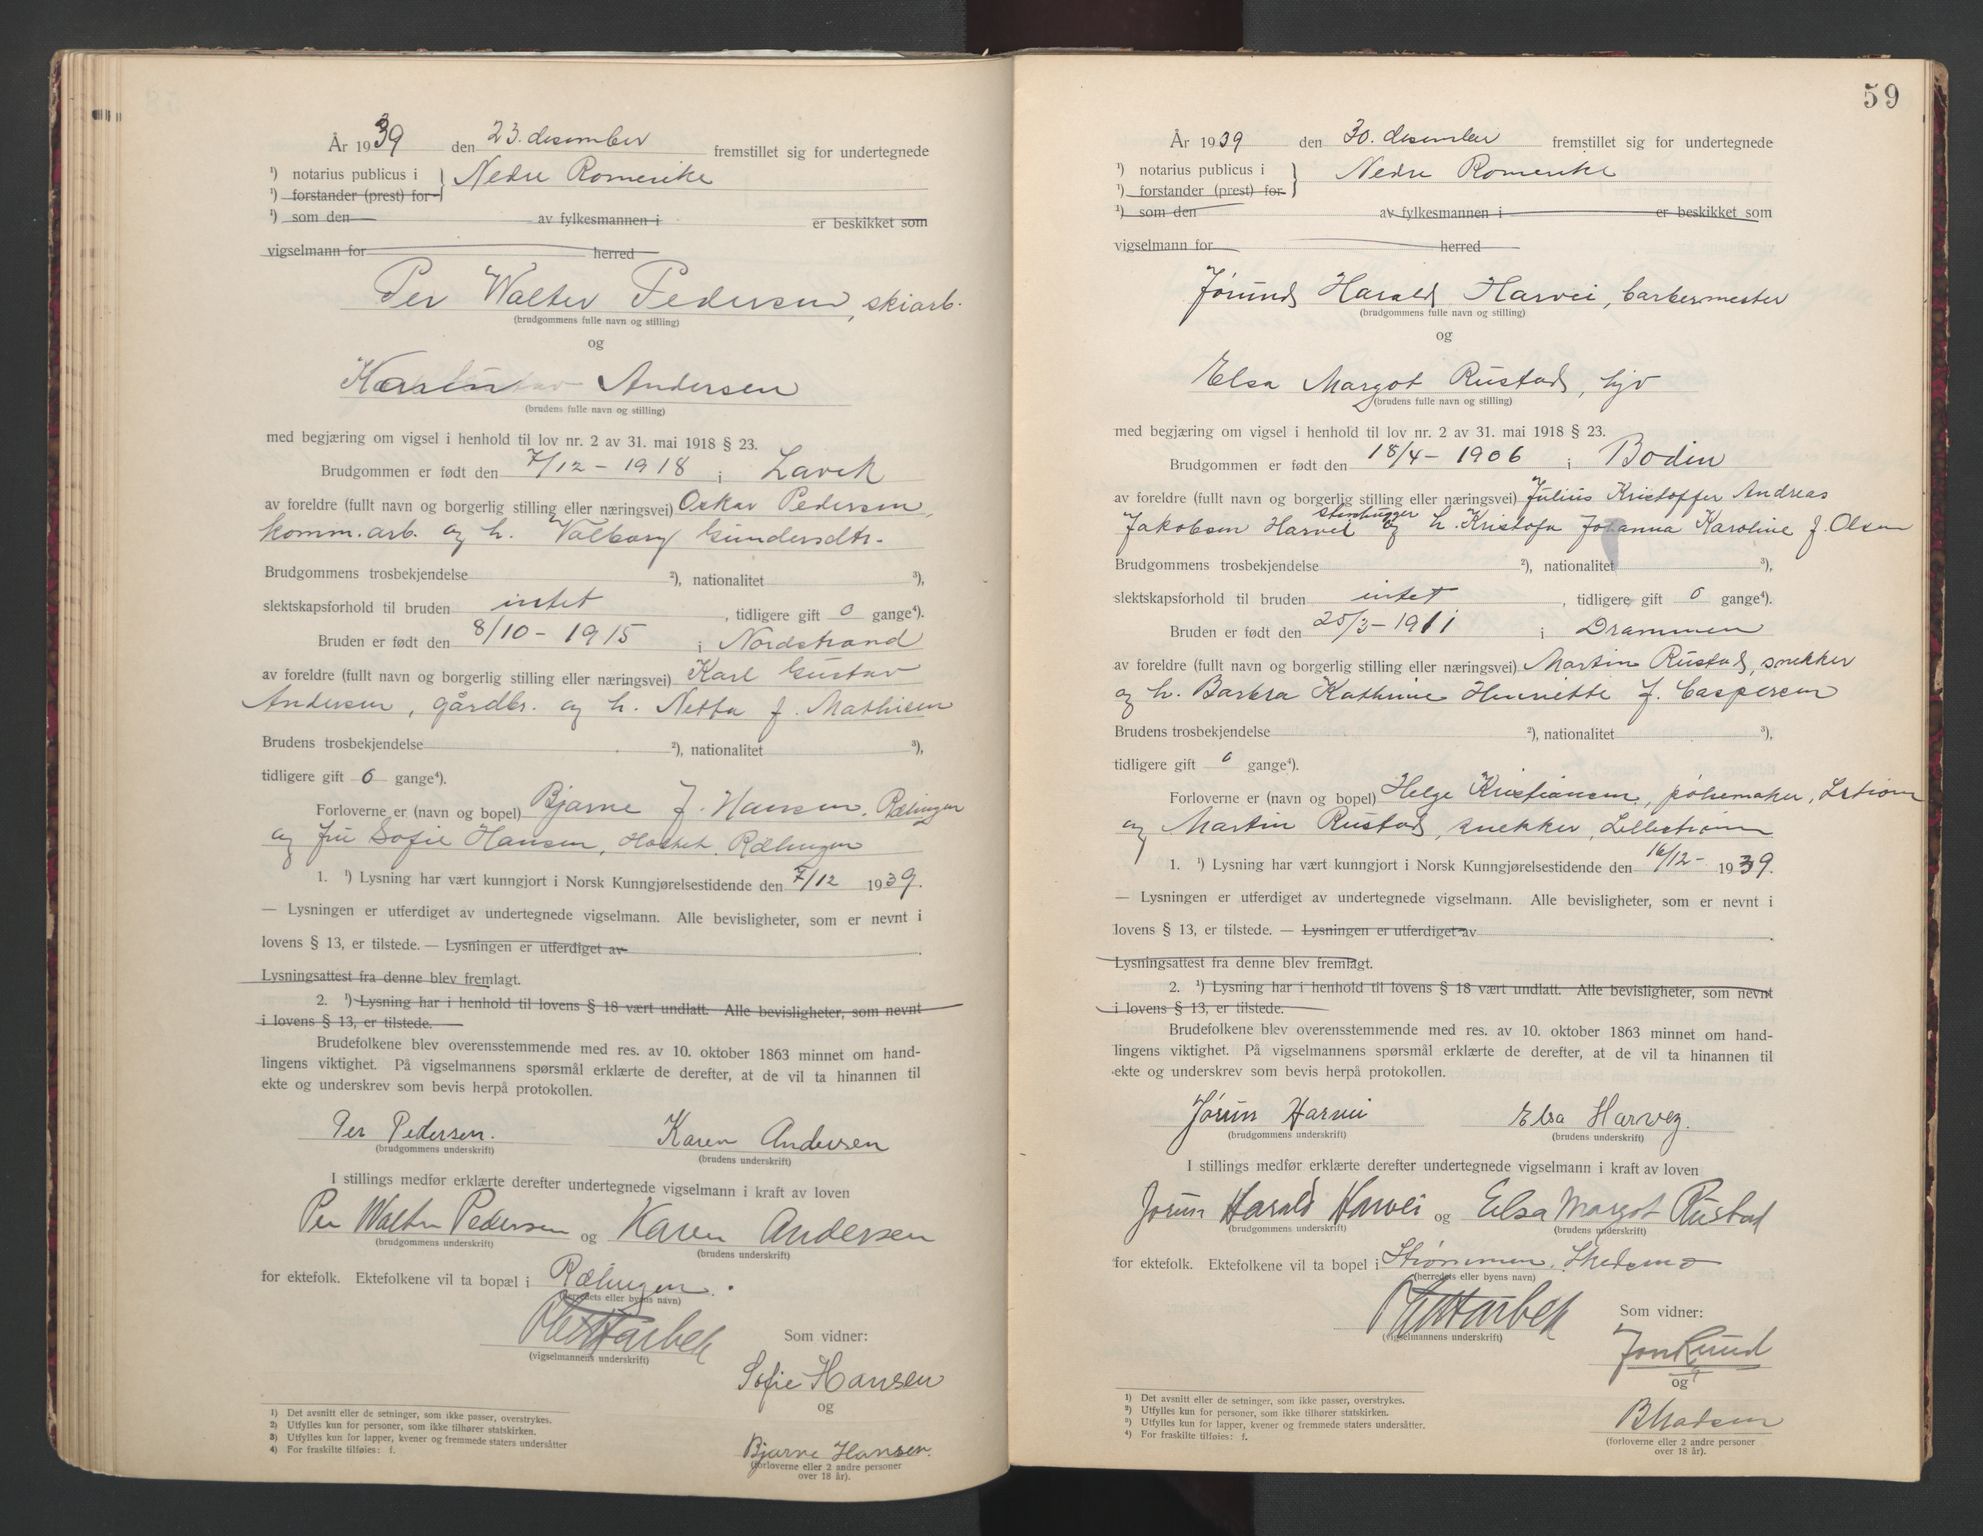 År 1939 den 23. desember fremstillet sig for undertegnede
¹) notarius publicus i } Nedre Romerike
¹) forstander (prest) for
¹) som den av fylkesmannen i er beskikket som
vigselmann for herred
Per Walter Pedersen, skiarb.
(brudgommens fulle navn og stilling)
og
Karen Andersen
(brudens fulle navn og stilling)
med begjæring om vigsel i henhold til lov nr. 2 av 31. mai 1918 § 23.
Brudgommen er født den 7/12 - 1918 i Lavik
av foreldre (fullt navn og borgerlig stilling eller næringsvei) Oskar Pedersen,
komm.arb. og h. Valborg Gundersdtr.
Brudgommens trosbekjendelse ²), nationalitet ³),
slektskapsforhold til bruden intet, tidligere gift 0 gange⁴).
Bruden er født den 8/10 - 1915 i Nordstrand
av foreldre (fullt navn og borgerlig stilling eller næringsvei) Karl Gustav
Andersen, gårdbr. og h. Netta f. Mathisen
Brudens trosbekjendelse ²), nationalitet ³),
tidligere gift 0 gange⁴).
Forloverne er (navn og bopel) Bjarne J. Hansen, Rælingen
og fru Sofie Hansen, Rælingen
1. ¹) Lysning har vært kunngjort i Norsk Kunngjørelsestidende den 7/12 1939.
— Lysningen er utferdiget av undertegnede vigselmann. Alle bevisligheter, som er nevnt i
lovens § 13, er tilstede. — Lysningen er utferdiget av .
Lysningsattest fra denne blev fremlagt.
2. ¹) Lysning har i henhold til lovens § 18 vært undlatt. Alle bevisligheter, som nevnt
i lovens § 13, er tilstede.
Brudefolkene blev overensstemmende med res. av 10. oktober 1863 minnet om hand-
lingens viktighet. På vigselmannens spørsmål erklærte de derefter, at de vil ta hinannen til
ekte og underskrev som bevis herpå protokollen.
Per Pedersen. Karen Andersen
(brudgommens underskrift) (brudens underskrift)
I stillings medfør erklærte derefter undertegnede vigselmann i kraft av loven
Per Walter Pedersen og Karen Andersen
(brudgommens underskrift) (brudens underskrift)
for ektefolk. Ektefolkene vil ta bopæl i Rælingen.
(herredets eller byens navn)
(vigselmannens underskrift)
Som vidner:
Sofie Hansen
og
Bjarne Hansen.
(forloverne eller 2 andre personer
over 18 år).
1) Det avsnitt eller de setninger, som ikke passer, overstrykes.
2) Utfylles kun for personer, som ikke tilhører statskirken.
3) Utfylles kun for lapper, kvener og fremmede staters undersåtter
4) For fraskilte tilføies: f.
59
År 1939 den 30. desember fremstillet sig for undertegnede
¹) notarius publicus i } Nedre Romerike
¹) forstander (prest) for
¹) som den av fylkesmannen i er beskikket som
vigselmann for herred
Jørund Harald Harvei, barbermester
(brudgommens fulle navn og stilling)
og
Elsa Margot Rustad, hjv
(brudens fulle navn og stilling)
med begjæring om vigsel i henhold til lov nr. 2 av 31. mai 1918 § 23.
Brudgommen er født den 18/4 - 1906 i Bodin
av foreldre (fullt navn og borgerlig stilling eller næringsvei) Julius Kristoffer Andreas
Jakobsen Harvei stenhugger og h. Kristofa Johanna Karoline f. Olsen
Brudgommens trosbekjendelse ²), nationalitet ³),
slektskapsforhold til bruden intet, tidligere gift 0 gange⁴).
Bruden er født den 25/3 - 1911 i Drammen
av foreldre (fullt navn og borgerlig stilling eller næringsvei) Martin Rustad, snekker
og h. Barbra Kathrine Henriette f. Caspersen
Brudens trosbekjendelse ²), nationalitet ³),
tidligere gift 0 gange⁴).
Forloverne er (navn og bopel) Helge Kristiansen, pølsemaker, Lstrøm
og Martin Rustad, snekker, Lillestrøm
1. ¹) Lysning har vært kunngjort i Norsk Kunngjørelsestidende den 16/12 - 1939.
— Lysningen er utferdiget av undertegnede vigselmann. Alle bevisligheter, som er nevnt i
lovens § 13, er tilstede. — Lysningen er utferdiget av .
Lysningsattest fra denne blev fremlagt.
2. ¹) Lysning har i henhold til lovens § 18 vært undlatt. Alle bevisligheter, som nevnt
i lovens § 13, er tilstede.
Brudefolkene blev overensstemmende med res. av 10. oktober 1863 minnet om hand-
lingens viktighet. På vigselmannens spørsmål erklærte de derefter, at de vil ta hinannen til
ekte og underskrev som bevis herpå protokollen.
Jørun Harvei Elsa Harvey.
(brudgommens underskrift) (brudens underskrift)
I stillings medfør erklærte derefter undertegnede vigselmann i kraft av loven
Jørun Harald Harvei og Elsa Margot Rustad
(brudgommens underskrift) (brudens underskrift)
for ektefolk. Ektefolkene vil ta bopel i Strømmen, Skedsmo
(herredets eller byens navn)
(vigselmannens underskrift)
Som vidner:
Jon Ruud
og
B Madsen
(forloverne eller 2 andre personer
over 18 år).
¹) Det avsnitt eller de setninger, som ikke passer, overstrykes.
²) Utfylles kun for personer, som ikke tilhører statskirken.
³) Utfylles kun for lapper, kvener og fremmede staters undersåtter.
⁴) For fraskilte tilføies: f.